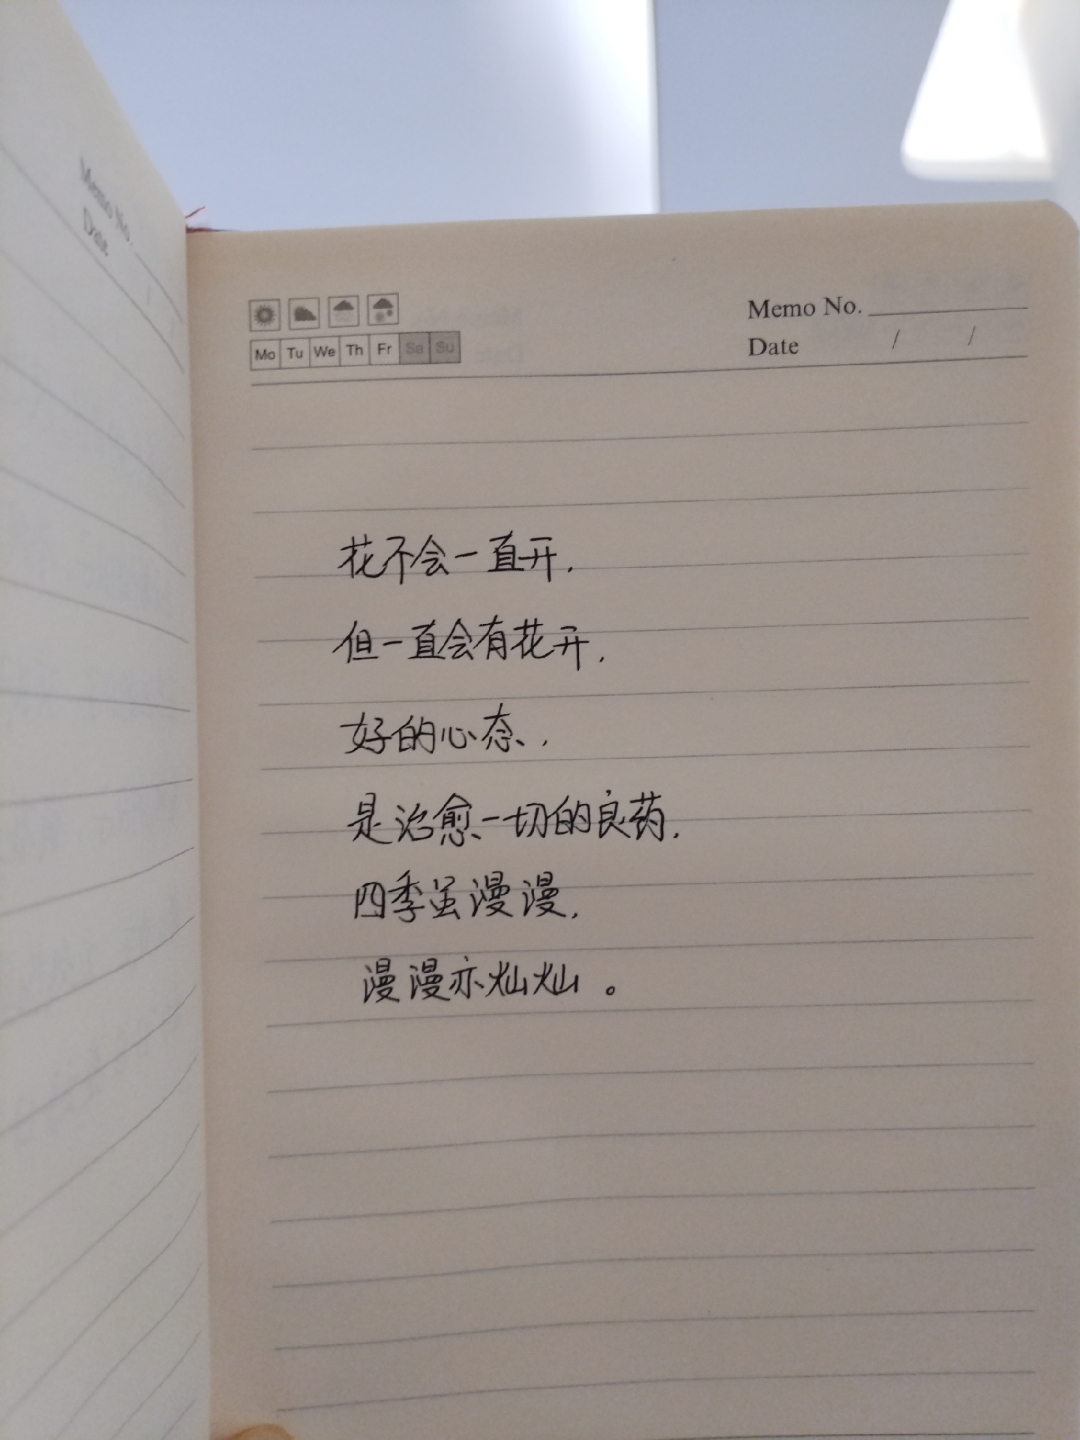 Memo No.
Date
Memo No.
Mo Tu We Th Fr Sa Su
Date / /
花不会一直开,
但一直会有花开,
好的心态,
是治愈一切的良药,
四季虽漫漫,
漫漫亦灿灿。